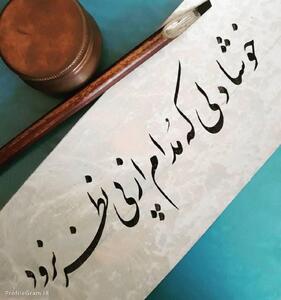 خوشا دلی که مدام از پی نظر نرود
ProfileGram.IR